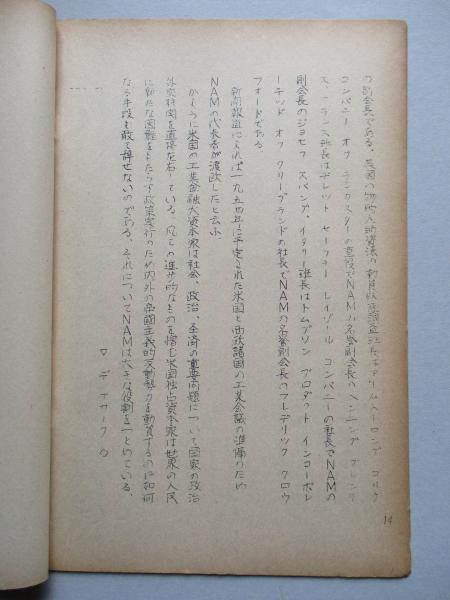 の副会長である。英国の物的人的資源の動員状況調査班長はアームストロング コルク
コンパニー オフ ランカスターの重役でNAMの名誉副会長のヘンニング プレンテ
ス、フランス班長はヂレット セーフテー レイザール コンパニーの社長でNAMの
副会長のジョセフ スパング、イタリー班長はトムプソン プロダット インコーポレ
ーテッド オフ クリーブランドの社長でNAMの名誉副会長のフレデリック クロウ
フォードである。
新聞報道によれば一九五四年に予定された米国と西欧諸国の工業会議の準備のため
NAMの代表者が渡欧したと云ふ。
かように米国の工業金融大資本家は社会、政治、経済の重要問題について国家の政治
外交機関を直接左右している。凡ての進歩的なものを憎む米国独占資本家は世界の人民
に新たな困難をもたらす政策実行のため内外の帝國主義的反動勢力を動員するのに如何
なる手段も敢て辞せないのである。それについてNAMは大きな役割をつとめている。
14